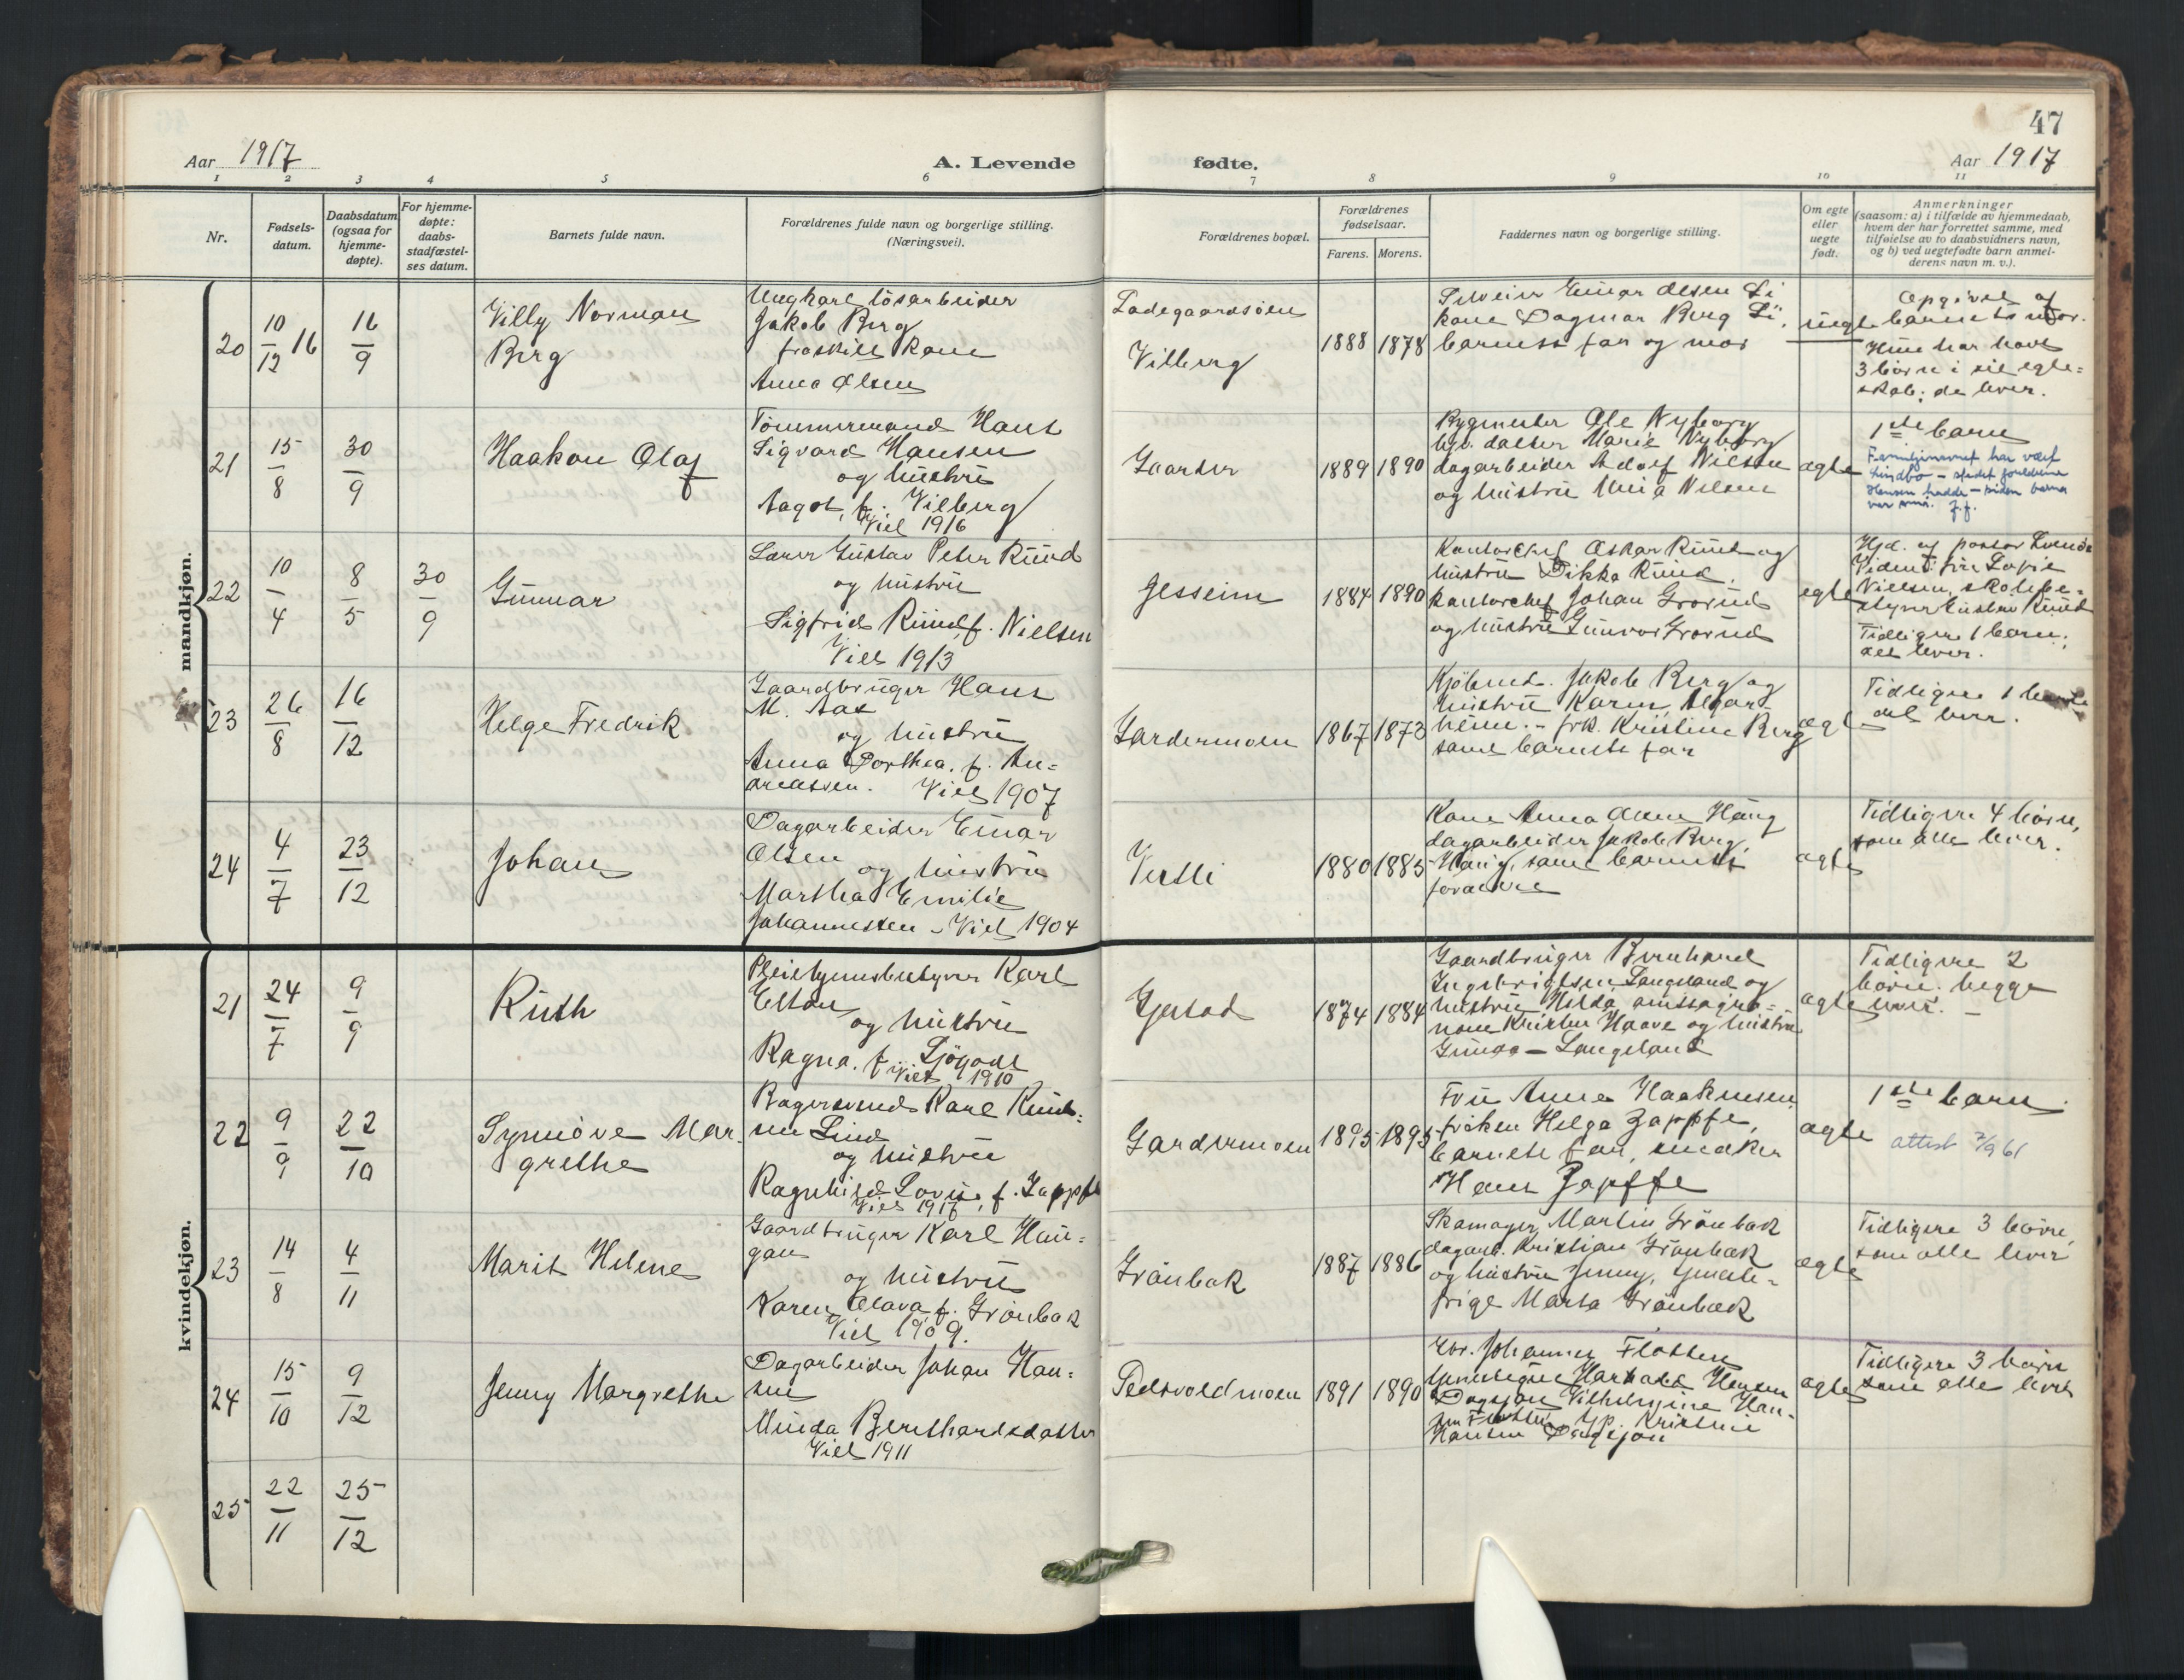 47
Aar 1917
A. Levende
fødte.
Aar 1917
1 2 3 4 5 6 7 8 9 10 11
Nr.
Fødsels-
datum.
Daabsdatum
(ogsaa for
hjemme-
døpte).
For hjemme-
døpte:
daabs-
stadfæstel-
ses datum.
Barnets fulde navn.
Forældrenes fulde navn og borgerlige stilling.
(Næringsvei).
Forældrenes bopæl.
Forældrenes
fødselsaar.
Farens. Morens.
Faddernes navn og borgerlige stilling.
Om egte
eller
uegte
født.
Anmerkninger
(saasom: a) i tilfælde av hjemmedaab,
hvem der har forrettet samme, med
tilføielse av to daabsvidners navn,
og b) ved uegtefødte barn anmel-
derens navn m. v.).
mandkjøn.
20
10/12 16
16/9
Villy Norman
Berg
Ungkarl løsarbeider
Jakob Berg
fraskilt kone
Anna Olsen
Ladegaardsøien
Vilberg
1888 1878
Einar Olsen Li
kone Dagmar Berg Li,
barnets far og mor
uegte
Opgivet af
barnets mor.
Hun har havt
3 børn i sit egte=
skab; de lever.
21
15/8
30/9
Haakon Olaf
Tømmermand Hans
Sigvard Hansen
og hustru
Aagot, f. Vilberg
Viet 1916
Gaarder
1889 1890
Ole Nyborg
datter Marie Nyborg
dagarbeider Adolf Nilsen
og hustru Nilsen
egte
1ste barn
Familienavnet har vært
Lindbo
Hansen hadde – siden barna
var små.
22
10/4
8/5
30/9
Gunnar
Lærer Gustav Peter Ruud
og hustru
Sigfrid Ruud f. Nielsen
Viet 1913
Jesseim
1884 1890
Kontorchef Oskar Ruud og
hustru Dikka Ruud,
kontorchef Johan Grorud
og hustru Gunvor Grorud
egte
Hjd. af pastor
Vidner: fru Lovie
Nielsen, skolebe=
styrer Gustav Ruud
Tidligere 1 barn;
det lever.
23
26/8
16/12
Helge Fredrik
Gaardbruger Hans
M. Aas
og hustru
Anna Dorthea, f. An=
dreassen. Viet 1907
Gardermoen
1867 1873
Kjøbmd. Jakob Berg og
hustru Karen,
frk. Kristine Berg
samt barnets far
egte
Tidligere 1 barn
det lever.
24
4/7
23/12
Johan
Dagarbeider Einar
Olsen
og hustru
Martha Emilie
Johannessen – Viet 1904
Verlli
1880 1885
Kone Anna Olsen Haug
dagarbeider Jakob Berg,
Haug, samt barnets
forældre
egte
Tidligere 4 børn,
som alle lever.
kvindekjøn.
21
24/7
9/9
Ruth
Pleiehjemsbestyrer Karl
Elton
og hustru
Ragna, f. Sjøgodt
Viet 1910
Gjestad
1874 1884
Gaardbruger Bernhard
Ingebrigtsen Langeland og
hustru Hilda, amtsagro=
nom Kristen Haave og hustru
Gunda – Langeland
egte
Tidligere 2
børn. begge
lever. –
22
9/9
22/10
Synnøve Mar-
grethe
Bagersvend Karl Knud=
sen Lind
og hustru
Ragnhild Lovise, f. Zappfe
Viet 1917
Gardermoen
1895 1895
Fru Anna Haakensen
frøken Helga Zappfe,
barnets far, snedker
Hans Zapffe
egte
1ste barn
attest 7/9 61
23
14/8
4/11
Marit Helene
Gaardbruger Karl Hau=
gan
og hustru
Karen Olava f. Grønbak
Viet 1909.
Grønbak
1887 1886
Skomager Martin Grønbæk
dagarb. Kristian Grønbæk
og hustru Jenny,
Marta Grønbæk
egte
Tidligere 3 børn,
som alle lever
24
15/10
9/12
Jenny Margrethe
Dagarbeider Johan Han=
sen
Minda Bernthardsdatter
Viet 1911
Pedsvoldmoen
1891 1890
Johannes Flatten
Harhald Hansen
Dagsjøn Vilhelmine Han-
sen Kristine
Hansen Dagsjøn
egte
Tidligere 3 børn
som alle lever
25
22/11
25/12